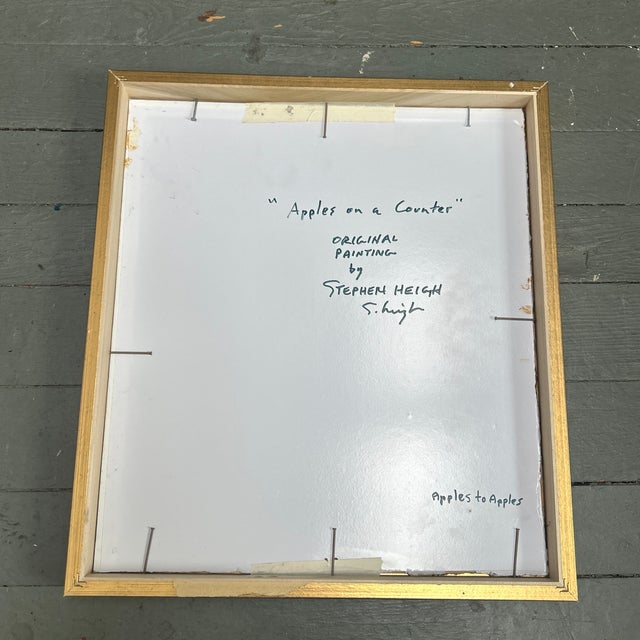 "Apples on a Counter"
ORIGINAL
PAINTING
by
STEPHEN HEIGH
S. Heigh
Apples to Apples